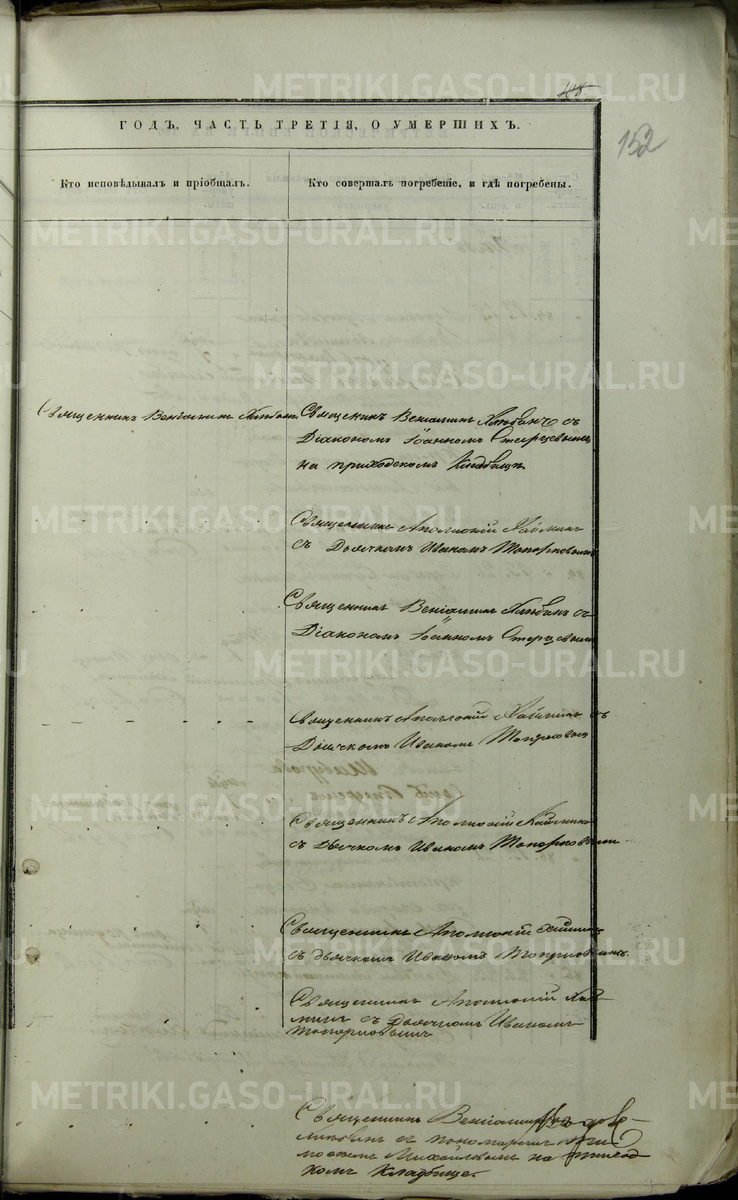 48
152
ГОДЪ, ЧАСТЬ ТРЕТІЯ, О УМЕРШИХЪ.
Кто исповѣдывалъ и пріобщалъ.
Кто совершалъ погребеніе, и гдѣ погребены.
Священникъ Веніаминъ
Священникъ Веніаминъ съ
Діакономъ Іоанномъ Стерцевымъ
на приходскомъ кладбищѣ
Священникъ Аполлоній
съ Дьячкомъ Иваномъ Топорковымъ
Священникъ Веніаминъ съ
Діакономъ Іоанномъ Стерцевымъ
Священникъ Аполлоній съ
Дьячкомъ Иваномъ Топорковымъ
Священникъ Аполлоній
съ Дьячкомъ Иваномъ Топорковымъ
Священникъ Аполлоній
съ дьячкомъ Иваномъ Топорковымъ
Священникъ Аполлоній
съ Дьячкомъ Иваномъ
Топорковымъ
Священникъ Веніаминъ
съ пономаремъ
Михайловымъ на приход-
комъ кладбище.
METRIKI.GASO-URAL.RU